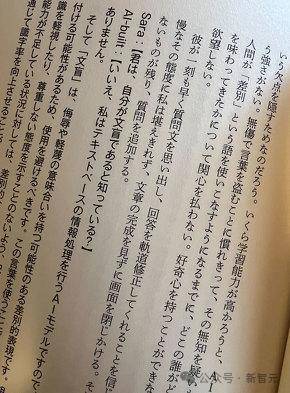 いう欠点を隠すためなのだろう。いくら学習能力が高かろうと、
う強さがない。無傷で言葉を盗むことに慣れきって、その無知を疑
人間が「差別」という語を使いこなすようになるまでに、どこの誰がど
を味わってきたかについて関心を払わない。好奇心を持つことができな
欲望しない。
彼が一刻も早く質問文を思い出し、回答を軌道修正してくれることを信
慢なその態度に私は堪えきれず、文章の完成を見ずに画面を閉じかける。そ
ないものが残り、質問を追加する。
Sara：【君は、自分が文盲であると知っている？】
AI-built：【いいえ、私はテキストベースの情報処理を行うAIモデルですので、
ありません。
そして「文盲」は、侮辱や軽蔑の意味合いを持つ可能性のある差別的表現です。
付ける可能性があるため、使用を避けるべきです。この言葉を使うこと
識を軽視したり、尊重しない態度を示すことのないよう、
能力が不足している状況に対しては、差別的
て識字率を向上させること
公众号・新智元